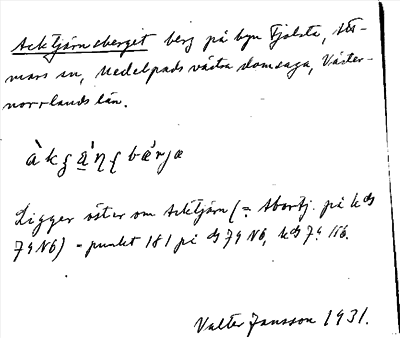 Acktjärnsberget berg på byn Fjolsta, Att-
mars sn, Medelpads västra domsaga, Väster-
norrlands län.
Ligger öster om Acktjärn (= Abortj. på
74 N6) - punkt 181 på 74 N6, 74 N6.
Valter Jansson 1931.